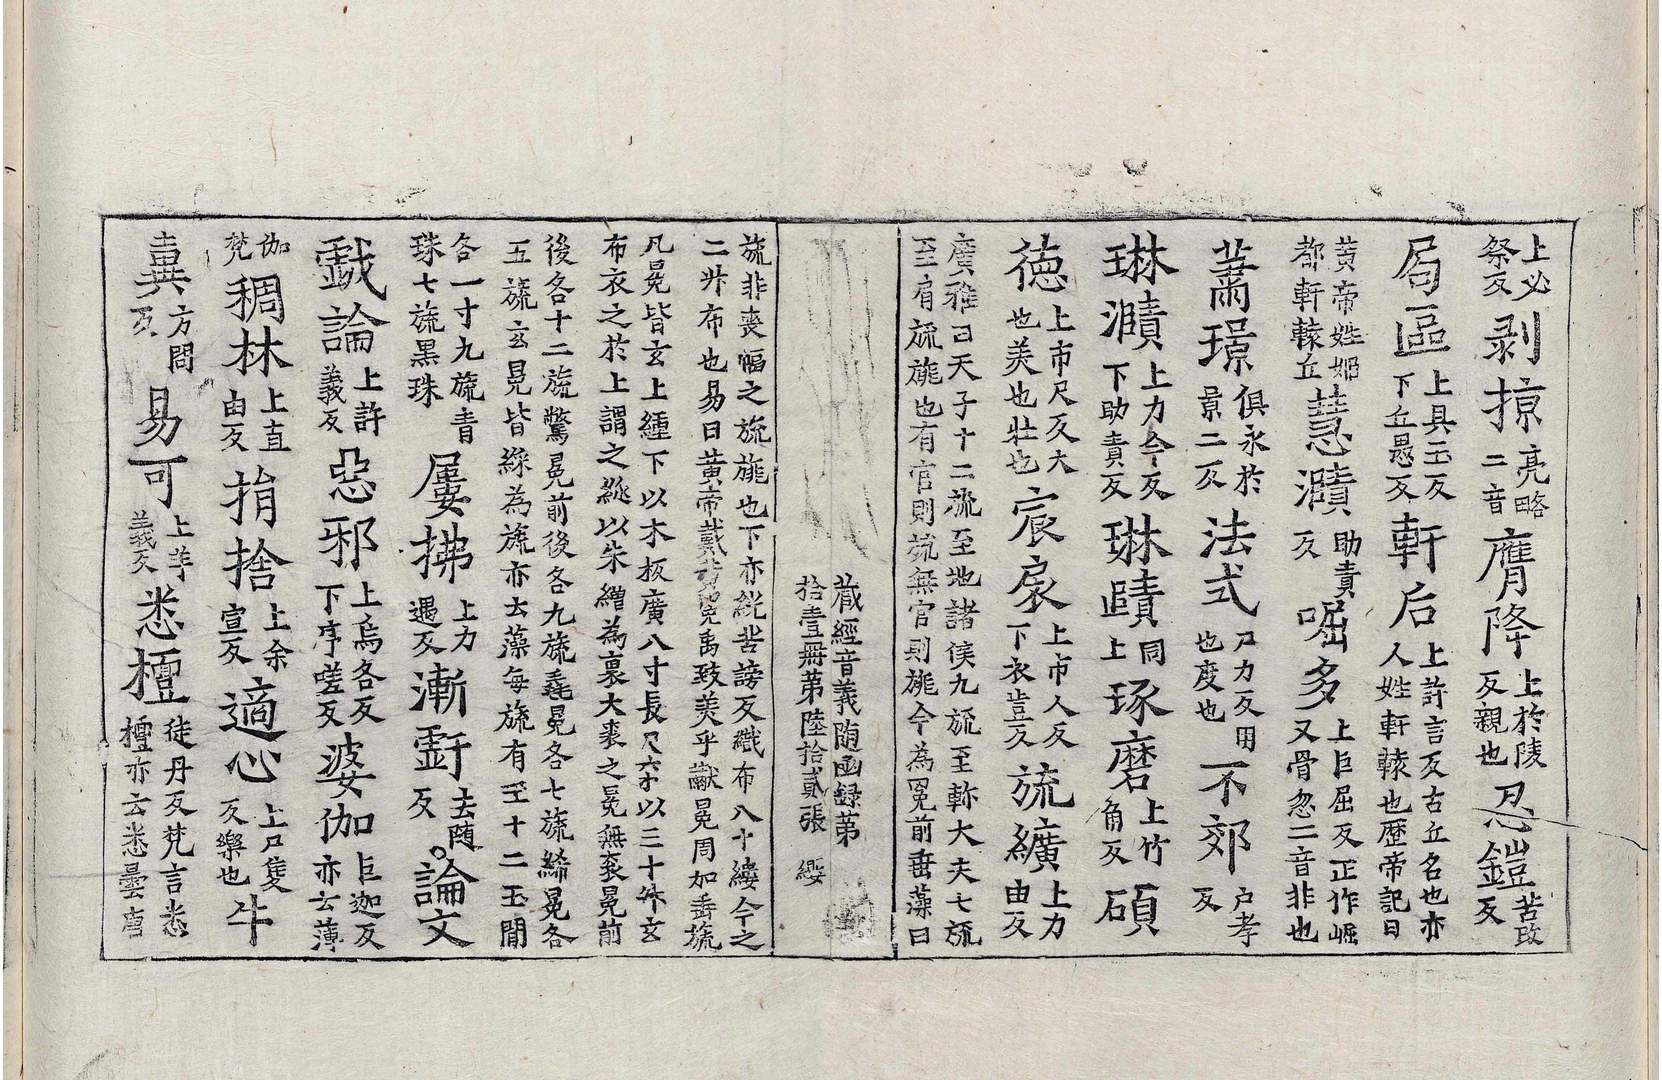 上必祭反剥掠亮略二音膺降上於陵反親也忍鎧苦改反
局區上具玉反下丘愚反軒后上許言反古丘名也亦人姓軒轅也歴帝記曰
黄帝姓姬都軒轅丘慧賾助責反崛多上巨屈反正作崛又骨忽二音非也
蕭璟俱永於景二反法式尸力反用也度也不郊户孝反
琳賾上力今反下助責反琳賾同上琢磨上竹角反碩
德上市尺反大也美也壯也宸扆上市人反下衣豈反旒纊上力由反
廣雅曰天子十二旒至地諸侯九旒至軫大夫七旒至肩旒旄也有官則旒無官則旄今為冕前垂藻曰
藏經音義随函録第拾壹冊第陸拾貳張 纓
旒非喪幅之旒旄也下亦絖苦謗反織布八十縷今之二升布也易曰黄帝戴冕禹致美乎黻冕周加垂旒
凡冕皆玄上纁下以木板廣八寸長尺六寸以三十升玄布衣之於上謂之綖以朱繒為裏大裘之冕無袞冕前
後各十二旒驚冕前後各九旒毳冕各七旒絺冕各五旒玄冕皆綵為旒亦去藻每旒有玉十二玉間
各一寸九旒青珠七旒黒珠屢拂上力遇反漸霽去随反論文
戱論上許義反惡邪上烏各反下序嗟反婆伽巨迦反亦云薄
伽梵稠林上直由反捐捨上余宣反適心上尸隻反樂也牛
糞方問反易可上羊義反悉檀徒丹反梵言悉檀亦云悉曇唐